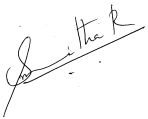 Smitha R